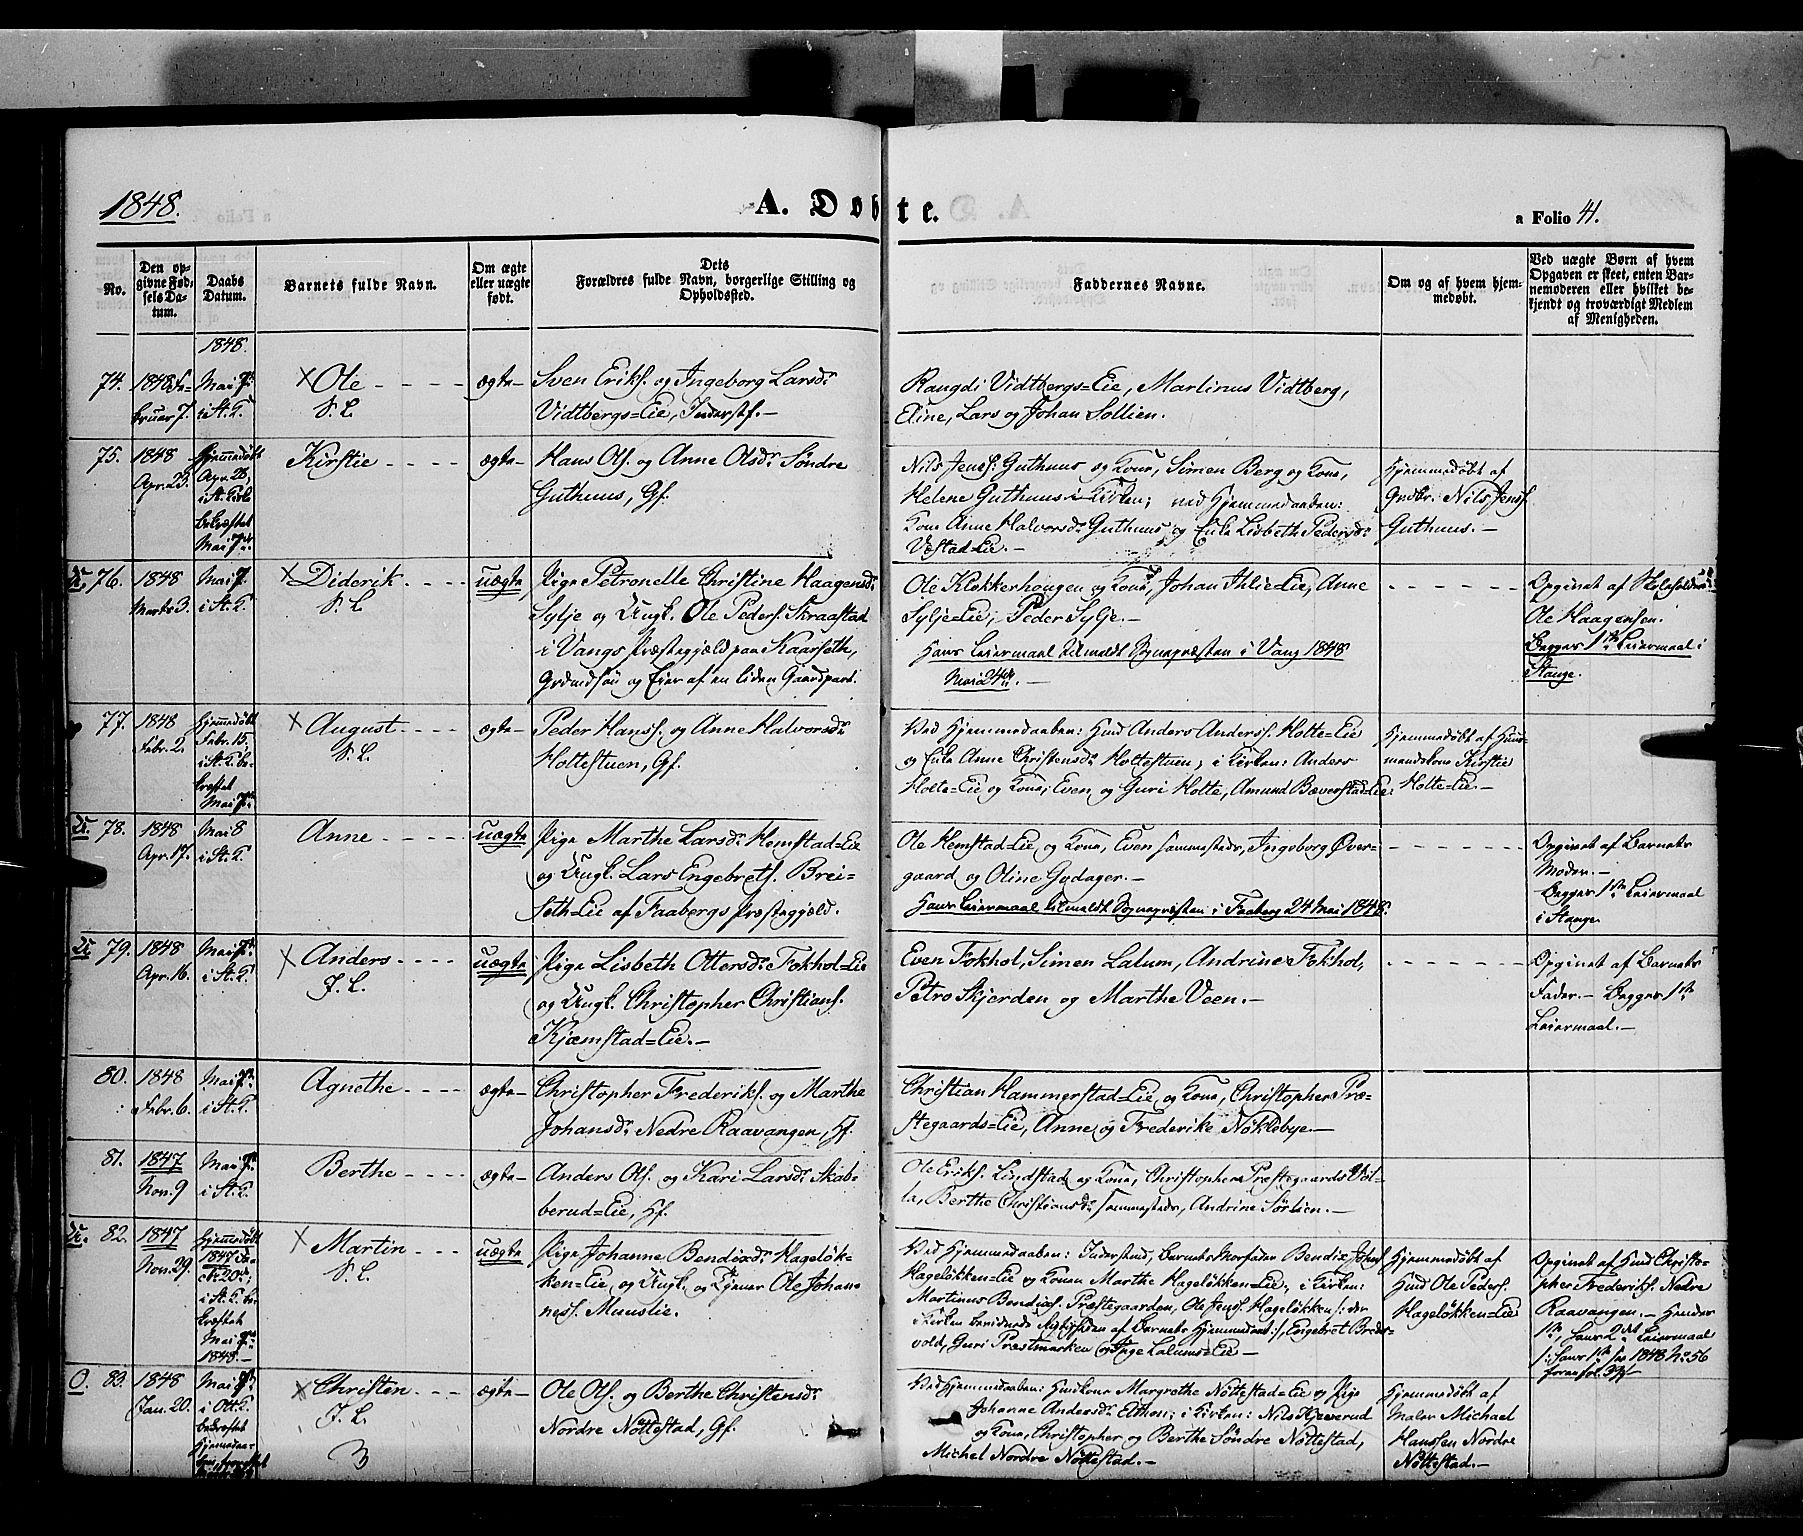 1848.
A. Døbte.
a Folio 41.
No.
Den op-
givne Fød-
sels Da-
tum.
Daabs
Datum.
Barnets fulde Navn.
Om ægte
eller uægte
født.
Dets
Forældres fulde Navn, borgerlige Stilling og
Opholdssted.
Faddernes Navne.
Om og af hvem hjem-
medøbt.
Ved uægte Børn af hvem
Opgaven er skeet, enten Bar-
nemoderen eller hvilket be-
kjendt og troværdigt Medlem
af Menigheden.
1848.
74.
1848 Fe-
bruar 7.
Mai 7de
i St. K.
× Ole
V. L.
ægte
Sven Eriks. og Ingeborg Larsdr
Vidtbergs=Eie, Inderst.
Rangdi Vidtbergs=Eie, Martinus Vidtberg,
Eline, Lars og Johan Sollien.
75.
1848
Apr. 23.
Hjemmedøbt
Apr. 28,
i St. Kirke
bekræftet
Mai 7de
Kirstie
ægte
Hans Ols. og Anne Olsdr Søndre
Guthuus, Gf.
Nils Jens. Guthuus og Kone, Simen Berg og Kone,
Helene Guthuus i Kirken; ved Hjemmedaaben:
Kone Anne Halvorsdr Guthuus og Enke Lisbeth Pedersdr
Vestad=Eie.
Hjemmedøbt af
Gmdbr. Nils Jens.
Guthuus.
U. 76.
1848
Marts 3.
Mai 7.
i St. K.
× Diderik
V. L.
uægte
Pige Petronelle Christine Haagensdr
Sylje og Ungk. Ole Peders. Skraastad
i Vangs Præstegjæld paa Kaarseth,
Grændsøn og Eier af en liden Gaardpart.
Ole Klokkerhougen og Kone, Johan Ihlie=Eie, Anne
Sylje=Eie, Peder Sylje.
Hans Leiermaal tilmeldt Sognepræsten i Vang 1848
Mai 24de.
Opgivet af
Ole Haagensen.
Begges 1ste Leiermaal i
Stange.
77.
1848
Febr. 2.
Hjemmedøbt
Febr. 15,
i St. K. be-
kræftet
Mai 7de
× August
V. L.
ægte
Peder Hans. og Anne Halvorsdr
Holtestuen, Gf.
Ved Hjemmedaaben: Hmd Anders Anders. Holte=Eie
og Enke Anne Christensdr Holtestuen; i Kirken: Anders
Holte=Eie og Kone, Even og Guri Holte, Amund Bæverstad=Eie.
Hjemmedøbt af Huus-
mandskone Kirstie
Holte=Eie.
U. 78.
1848
Apr. 17.
Mai 8
i St. K.
Anne
uægte
Pige Marthe Larsdr Hemstad=Eie
og Ungk. Lars Engebrets. Brei-
seth=Eie af Faabergs Præstegjæld.
Ole Hemstad=Eie og Kone, Even sammesteds, Ingeborg Øver-
gaard og Oline Gydager.
Hans Leiermaal tilmeldt Sognepræsten i Faaberg 24 Mai 1848.
Opgivet af Barnets
Moder.
Begges 1ste Leiermaal
i Stange
U. 79.
1848
Apr. 16.
Mai 7de
i St. K.
× Anders
J. L.
uægte
Pige Lisbeth Ottersdr Fokhol=Eie
og Ungk. Christopher Christians.
Kjæmstad=Eie.
Even Fokhol, Simen Lalum, Andrine Fokhol,
Petro Skjerden og Marthe Veen.
Opgivet af Barnets
Fader. Begges 1ste
Leiermaal.
80.
1848
Febr. 6.
Mai 7de
i St. K.
Agnethe
ægte
Christopher Frederiks. og Marthe
Johansdr Nedre Raavangen, Hf.
Christian Hammerstad=Eie og Kone, Christopher Præ-
stegaards=Eie, Anne og Frederike Nøklebye.
81.
1847
Nov. 9
Mai 7de
i St. K.
Berthe
ægte
Anders Ols. og Kari Larsdr Skab-
berud=Eie, Hf.
Ole Eriks. Lindstad og Kone, Christopher Præstegaards Vol-
la, Berthe Christiansdr sammesteds, Andrine Sørlien.
U. 82.
1847
Nov. 29.
Hjemmedøbt
1847 De-
cbr. 20de,
i St. K. be-
kræftet
Mai 7de
1848.
× Martin
V. L.
uægte
Pige Johanne Bendixdr Hageløk-
ken=Eie, og Ungk. og Tjener Ole Johan-
ness. Muuslie.
Ved Hjemmedaaben: Inderstmd, Barnets Morfader Bendix Johns.
Hageløkken=Eie og Konen Marthe Hageløkken=Eie, i Kirken:
Martinus Bendixs. Præstegaarden, Ole Jens. Hageløkken /: der
i Kirken bevidnede Rigtigheden af Barnets Hjemmedaab:/, Engebret Breds-
vold, Guri Præstmarken og Inge Lalums=Eie
Hjemmedøbt af
Hmd Ole Peders.
Hageløkken=Eie
Opgivet af Hmd Christo-
pher Frederiks. Nedre
Raavangen. Hendes
1ste, hans 2det Leiermaal
/: hans 1ste see 1848 No 56
foran fol. 39/
O. 83.
1848
Jan. 20.
Mai 7de
i Ott. K.
bekræftet
Hjemmedaa-
ben,
× Christen
J. L.
3
ægte
Ole Ols. og Berthe Christensdr
Nordre Nøttestad, Gf.
Ved Hjemmedaaben: Huskone Margrethe Nøttestad=Eie og Pige
Johanne Andersdr Elthon; i Kirken: Nils Kjeverud
og Kone, Christopher og Berthe Søndre Nøttestad,
Michel Nordre Nøttestad.
Hjemmedøbt af
Maler Michael
Hanssen Nordre
Nøttestad.